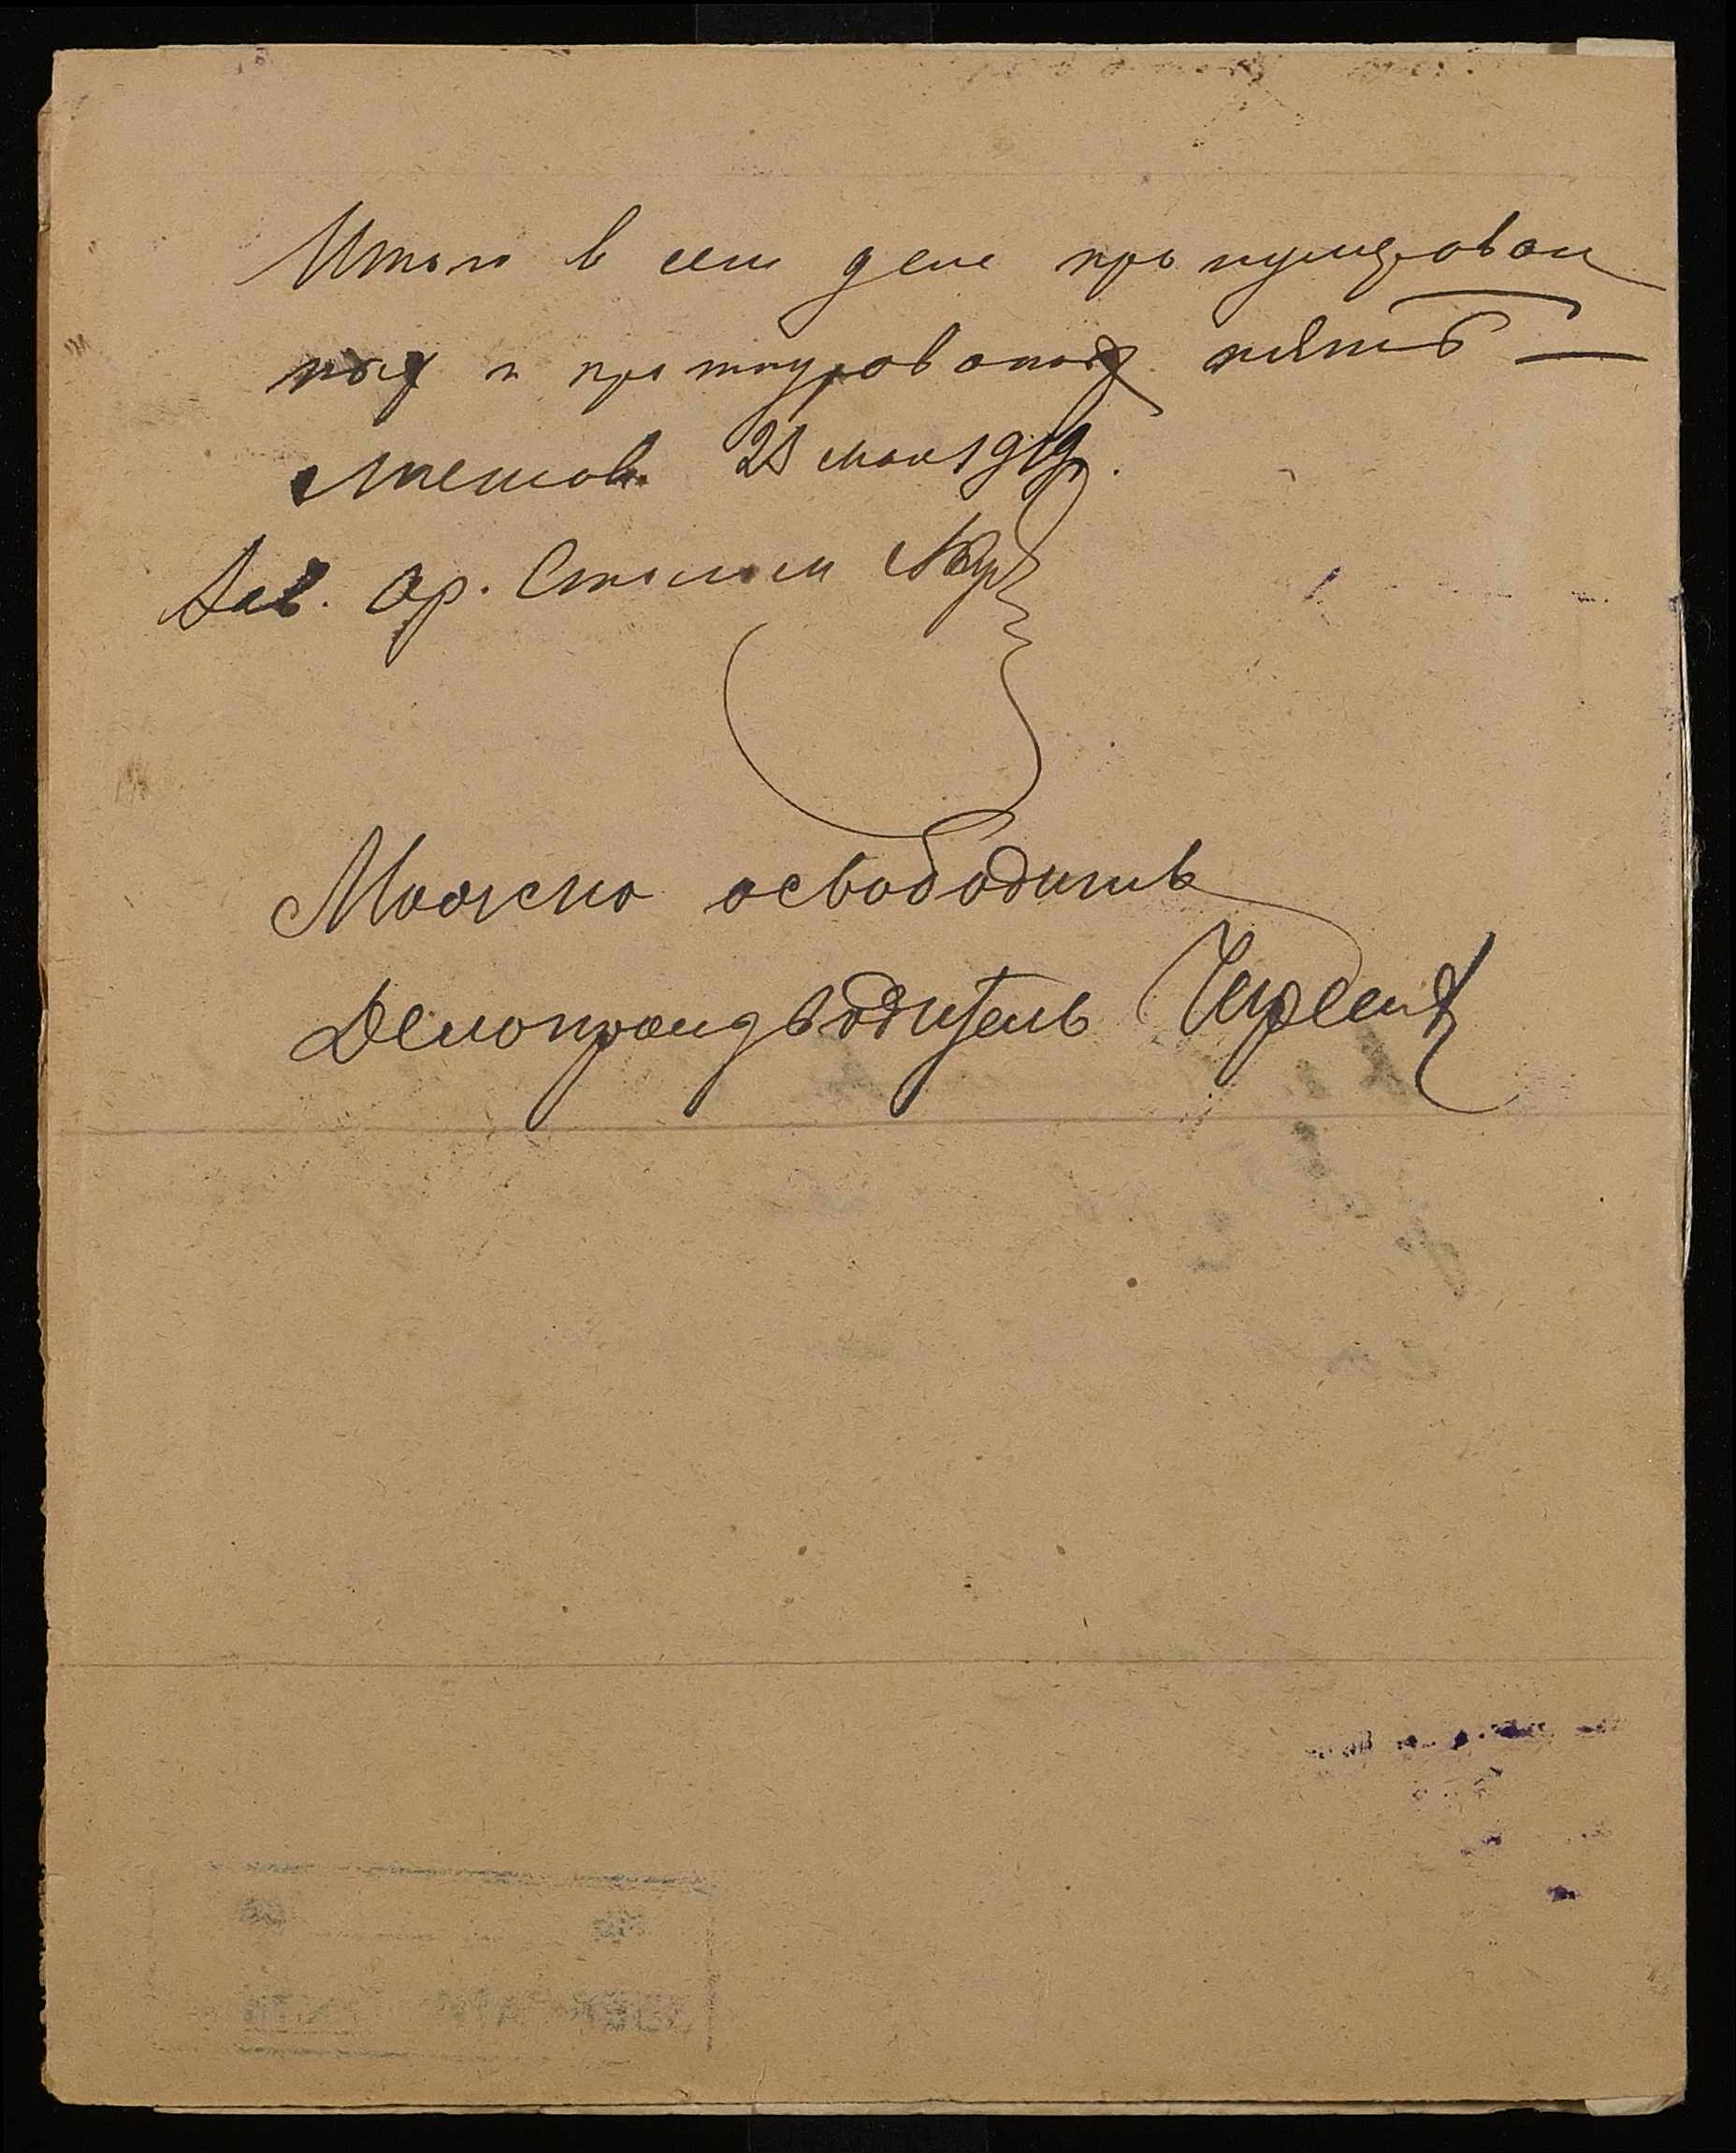 Итого в сем деле пронумерован
ных и прошнурованых пять
листов. 28 мая 1919 г.
Зав. Ар. Столом
Можно освободить
Делопроизводитель